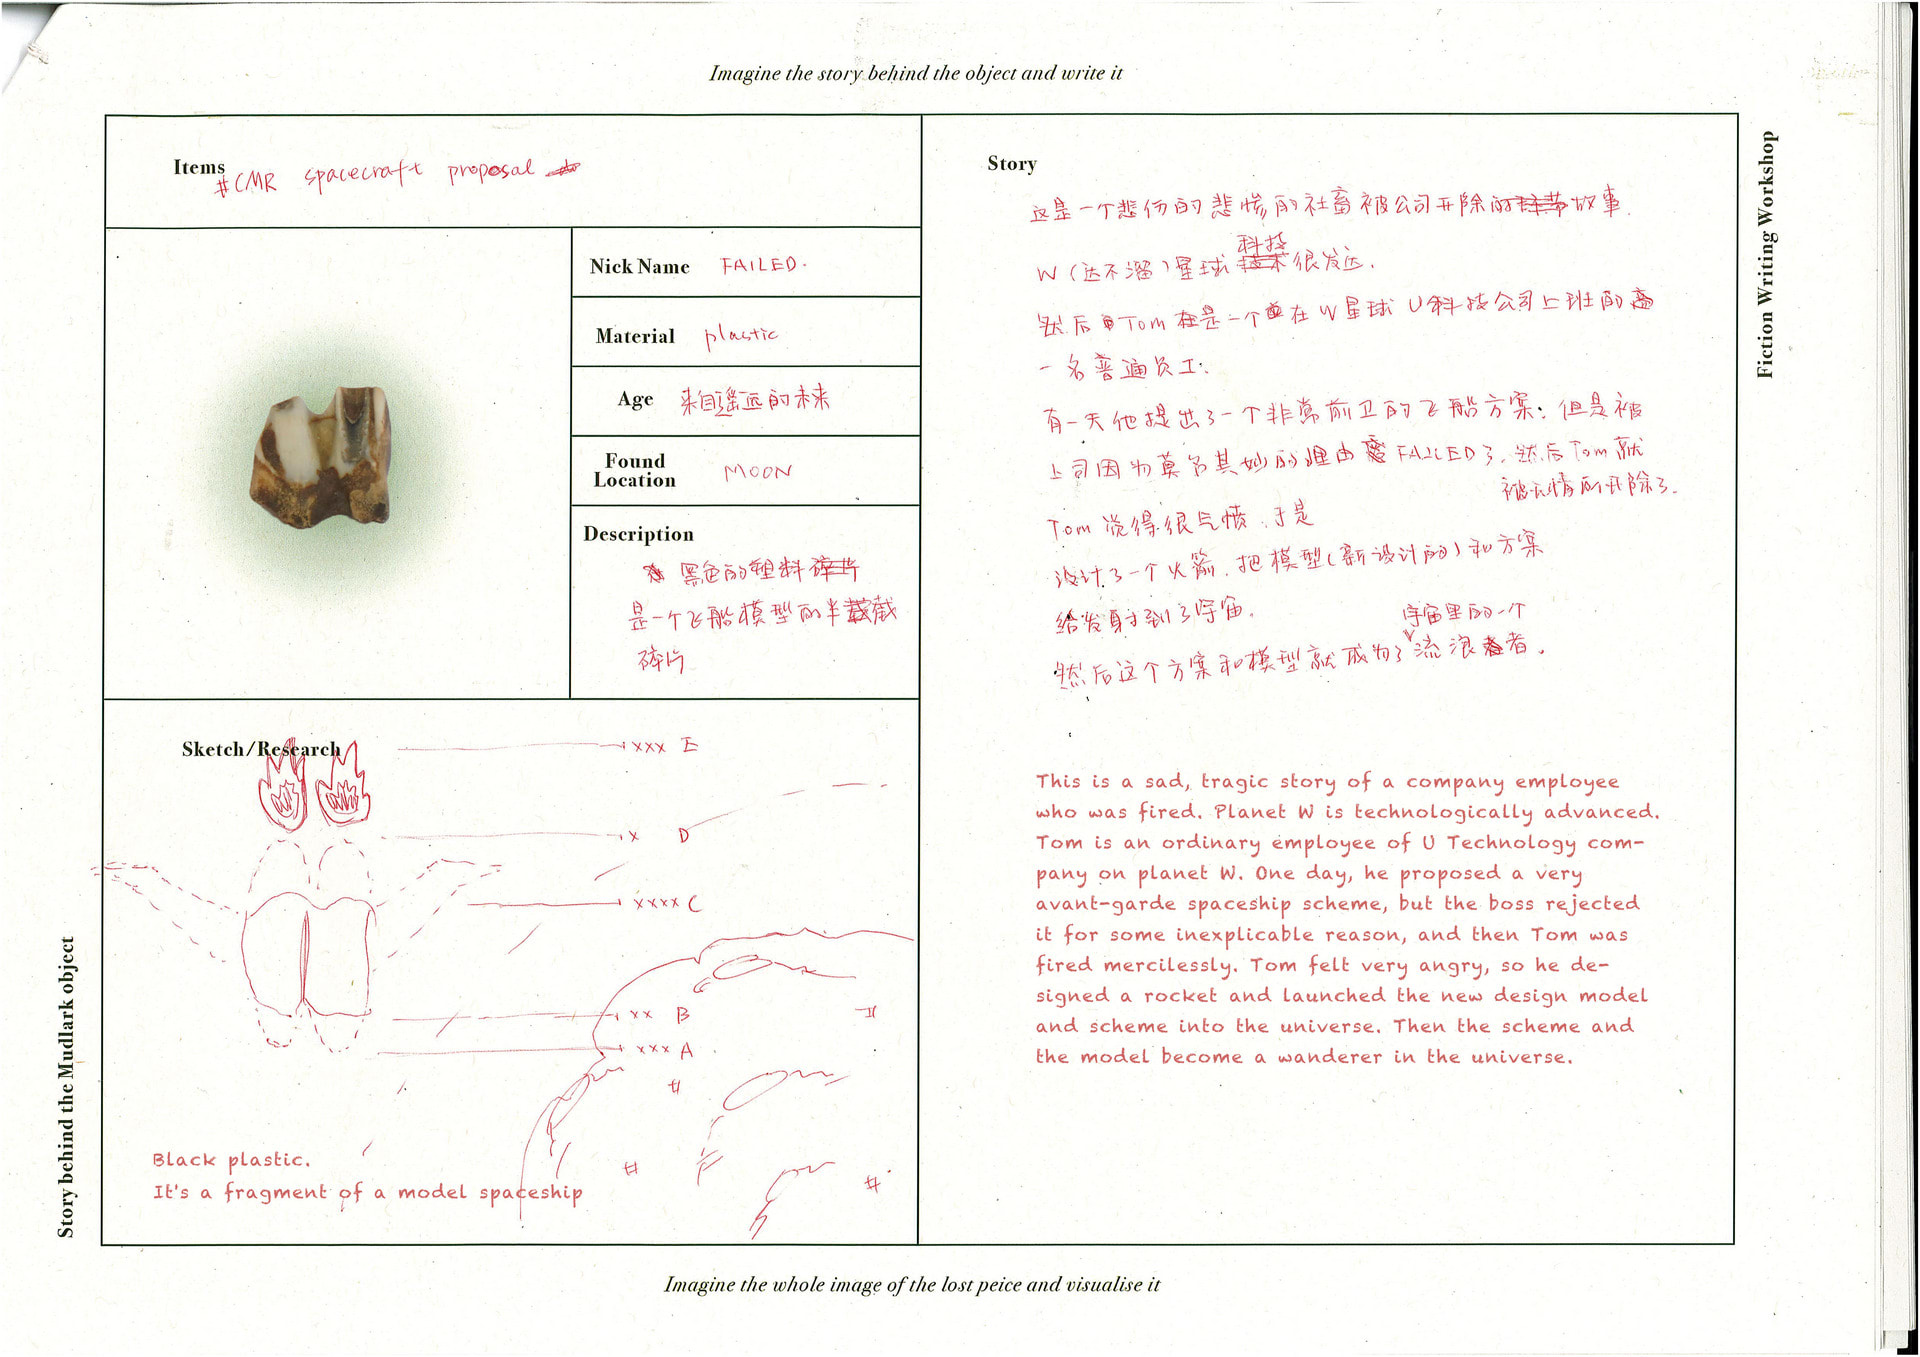 Imagine the story behind the object and write it
Items
#CMR spacecraft proposal
Nick Name FAILED.
Material plastic
Age 来自遥远的未来
Found
Location MOON
Description
黑色的塑料
是一个飞船模型的半截
碎片
Sketch/Research
xxx E
x D
xxxx C
xx B
xxx A
#
#
#
Black plastic.
It's a fragment of a model spaceship
Story
这是一个悲伤的悲惨的社畜被公司开除的故事.
科技
W(达不溜)星球很发达.
然后Tom是一个在W星球U科技公司上班的
一名普遍员工.
有一天他提出了一个非常前卫的飞船方案. 但是被
上司因为莫名其妙的理由FAILED了. 然后Tom就
被无情的开除了.
Tom觉得很气愤.于是
设计了一个火箭.把模型(新设计的)和方案
给发射到了宇宙.
宇宙里的一个
然后这个方案和模型就成为了流浪者.
This is a sad, tragic story of a company employee
who was fired. Planet W is technologically advanced.
Tom is an ordinary employee of U Technology com-
pany on planet W. One day, he proposed a very
avant-garde spaceship scheme, but the boss rejected
it for some inexplicable reason, and then Tom was
fired mercilessly. Tom felt very angry, so he de-
signed a rocket and launched the new design model
and scheme into the universe. Then the scheme and
the model become a wanderer in the universe.
Fiction Writing Workshop
Story behind the Mudlark object
Imagine the whole image of the lost peice and visualise it